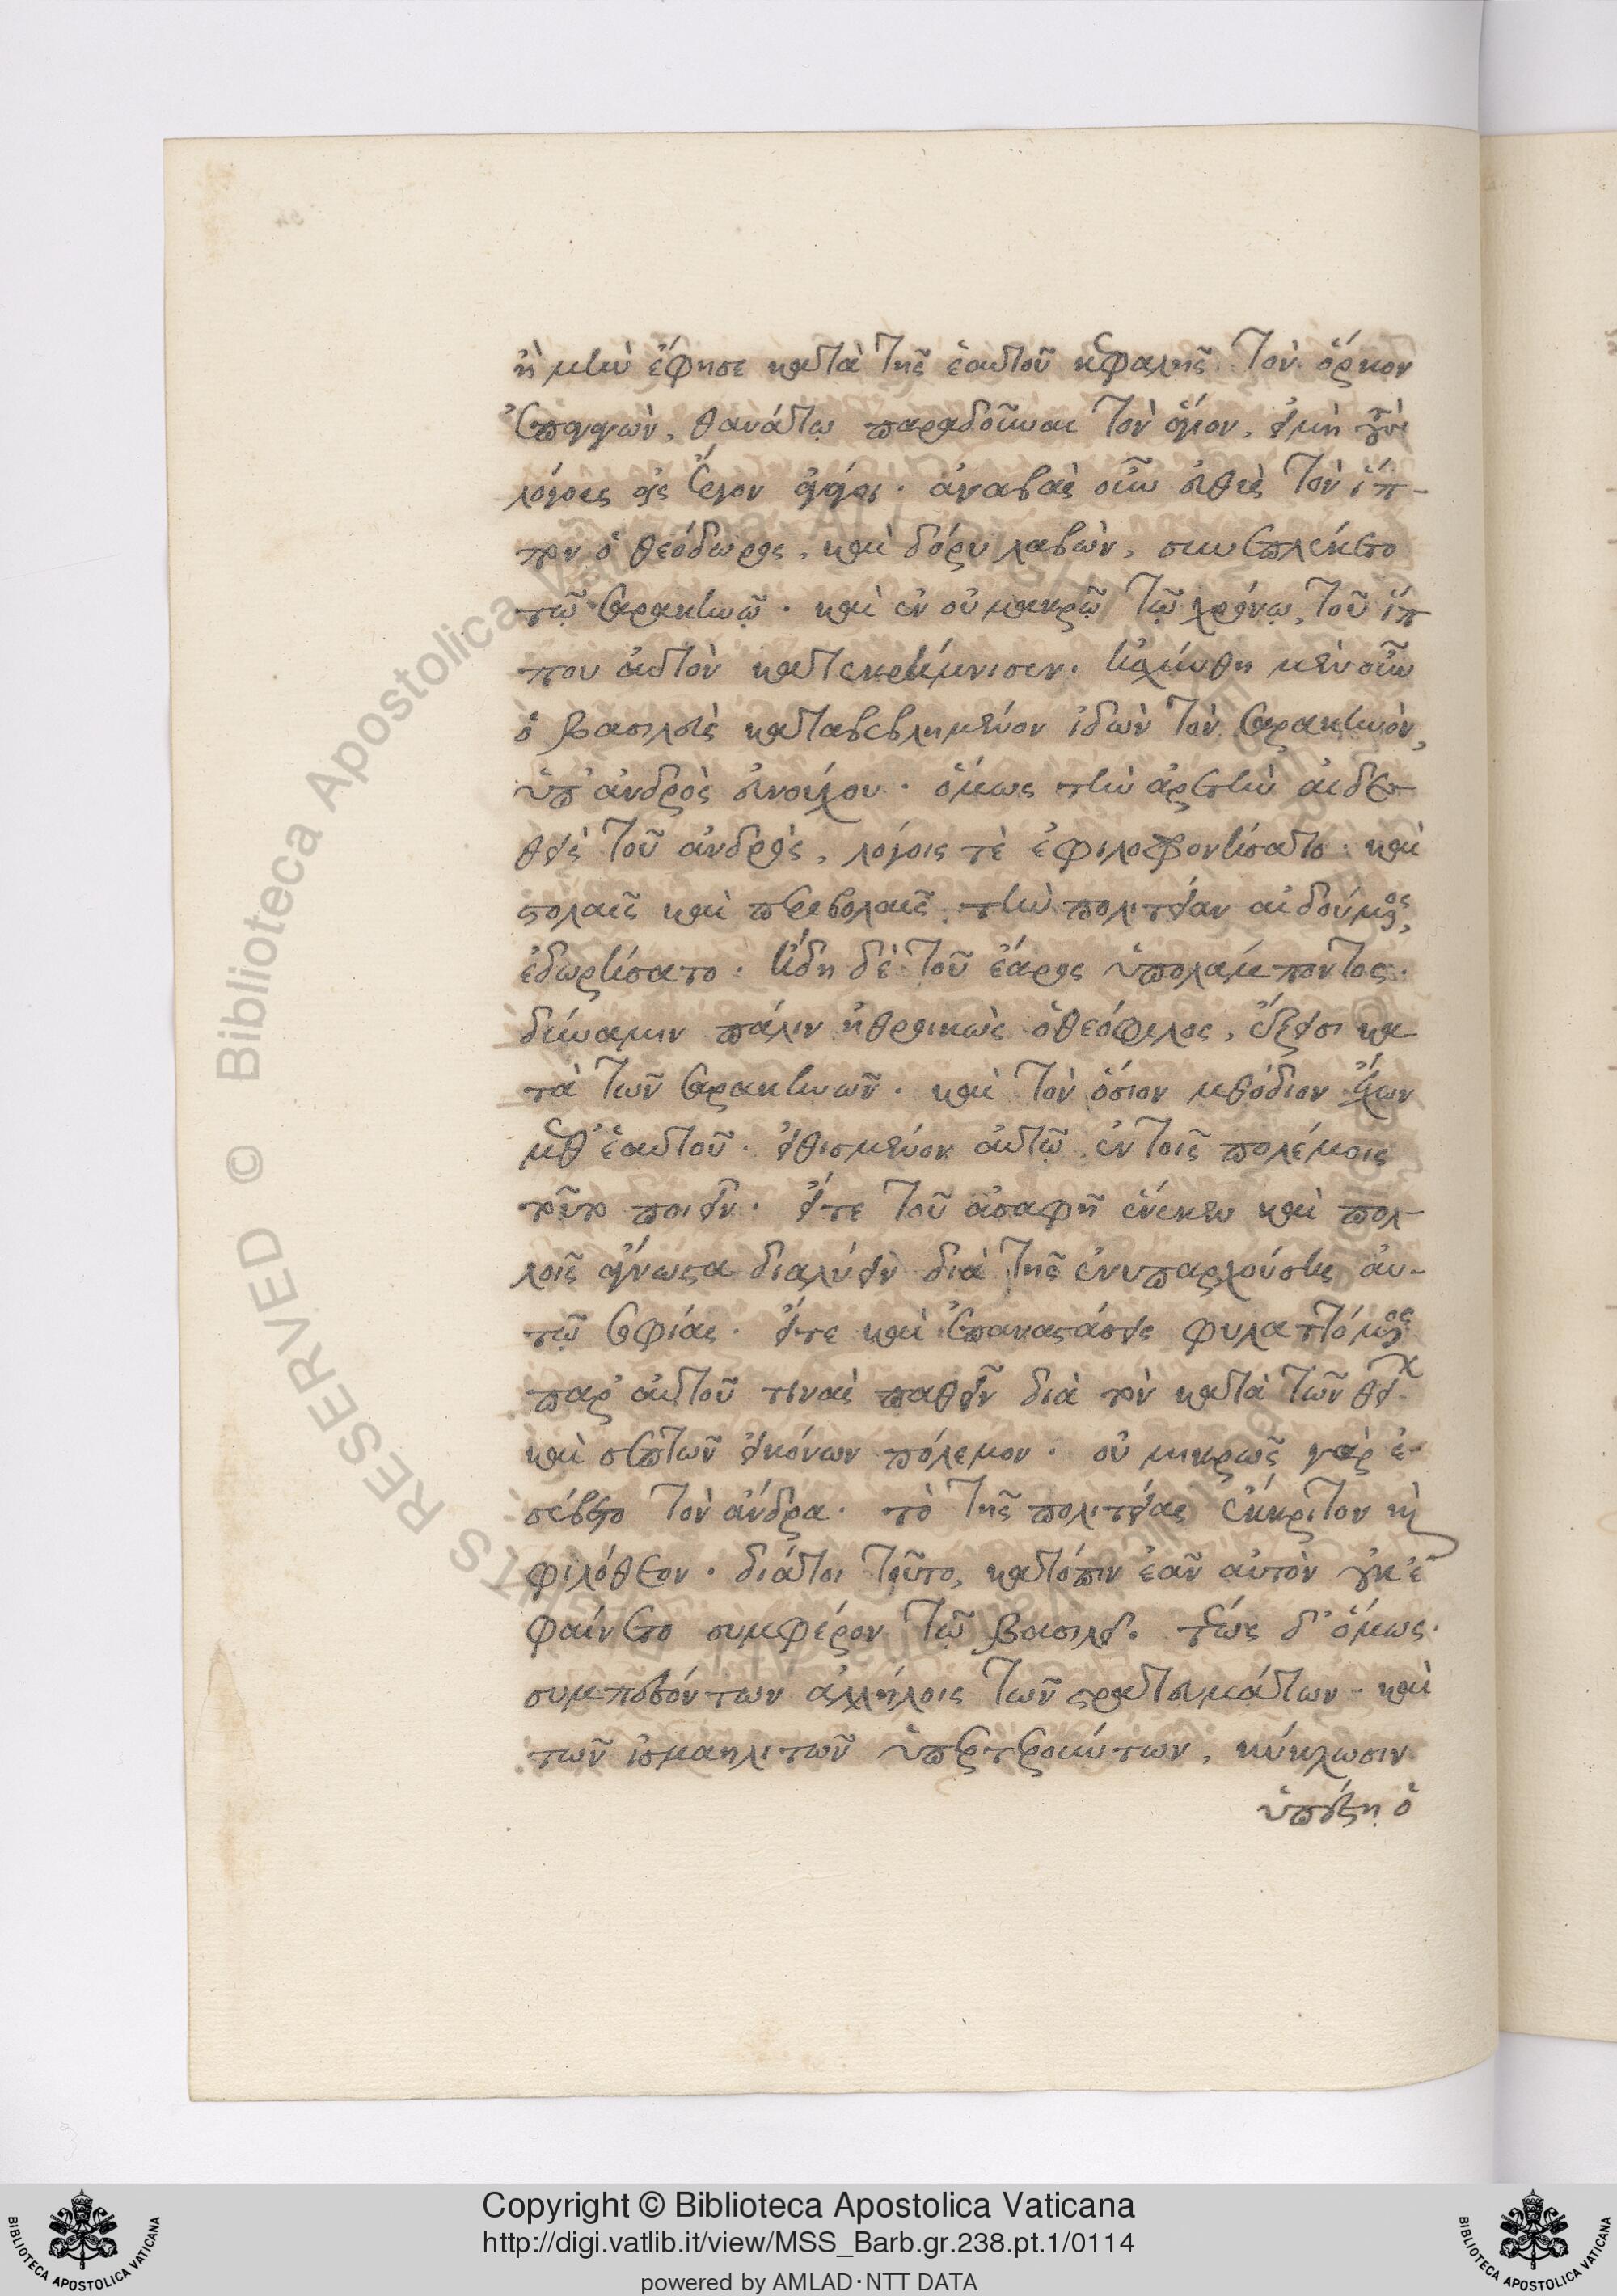 ἢ μὴν ἔφησε κατὰ τῆς ἑαυτοῦ κεφαλῆς τὸν ὅρκον
ἐπαγαγὼν, θανάτω παραδοῦναι τὸν, εἰ μὴ τοὶ
λόγοις εἰς ἔργον ἀγάγοι. ἀναβὰς οὖν εὐθὺς τὸν ἵπ-
πον ὁ θεόδωρος, καὶ δόρυ λαβὼν, συνεπλέκετο
τῷ σαρακηνῷ. καὶ ἐν οὐ μακρῷ τῷ χρόνῳ, τοῦ ἵπ
που αὐτὸν κατεκρήμνισεν. ἠσχύνθη μὲν οὖν
ὁ βασιλεὺς καταβεβλημένον ἰδὼν τὸν σαρακηνὸν,
ὑπ' ἀνδρὸς εὐνούχου. ὅμως τὴν ἀρετὴν αἰδεσ
θεὶς τοῦ ἀνδρὸς, λόγοις τὲ ἐφιλοφρονήσατο. καὶ
στολαῖς καὶ περιβολαῖς τὴν πολιτείαν αἰδούμενος,
ἐδωρήσατο. ἤδη δὲ τοῦ ἔαρος ὑπολάμποντος.
δύναμιν πάλιν ἠθροικὼς ὁ θεόφιλος, ἔξεισι κα
τὰ τῶν σαρακηνῶν. καὶ τὸν ὅσιον μεθόδιον ἔχων
μεθ' ἑαυτοῦ. εἰθισμένον αὐτῷ ἐν τοῖς πολέμοις
τοῦτο ποιεῖν. εἴτε τοῦ ἀσαφῆ ἕνεκεν καὶ πολ-
λοῖς ἄγνωστα διαλύειν διὰ τῆς ἐνυπαρχούσης αὐ-
τῷ σοφίας. εἴτε καὶ ἐπαναστάσεις φυλαττόμενος
παρ' αὐτοῦ τινὰς παθεῖν διὰ τὸν κατὰ τῶν θείων
καὶ σεπτῶν εἰκόνων πόλεμον. οὐ μικρῶς γὰρ ἐ-
σέβετο τὸν ἄνδρα. τὸ τῆς πολιτείας ἔκκριτον καὶ
φιλόθεον. διάτοι τοῦτο, κατόπιν ἐᾶν αὐτὸν οὐκ ἐ
φαίνετο συμφέρον τῷ βασιλεῖ. τέως δ' ὅμως.
συμπεσόντων ἀλλήλοις τῶν στρατευμάτων. καὶ
τῶν ἰσμαηλιτῶν ὑπερτερούντων, κύκλωσιν
ὑπέστη ὁ
© Biblioteca Apostolica Vaticana. ALL RIGHTS RESERVED
Copyright © Biblioteca Apostolica Vaticana
http://digi.vatlib.it/view/MSS_Barb.gr.238.pt.1/0114
powered by AMLAD·NTT DATA
BIBLIOTECA APOSTOLICA VATICANA
BIBLIOTECA APOSTOLICA VATICANA